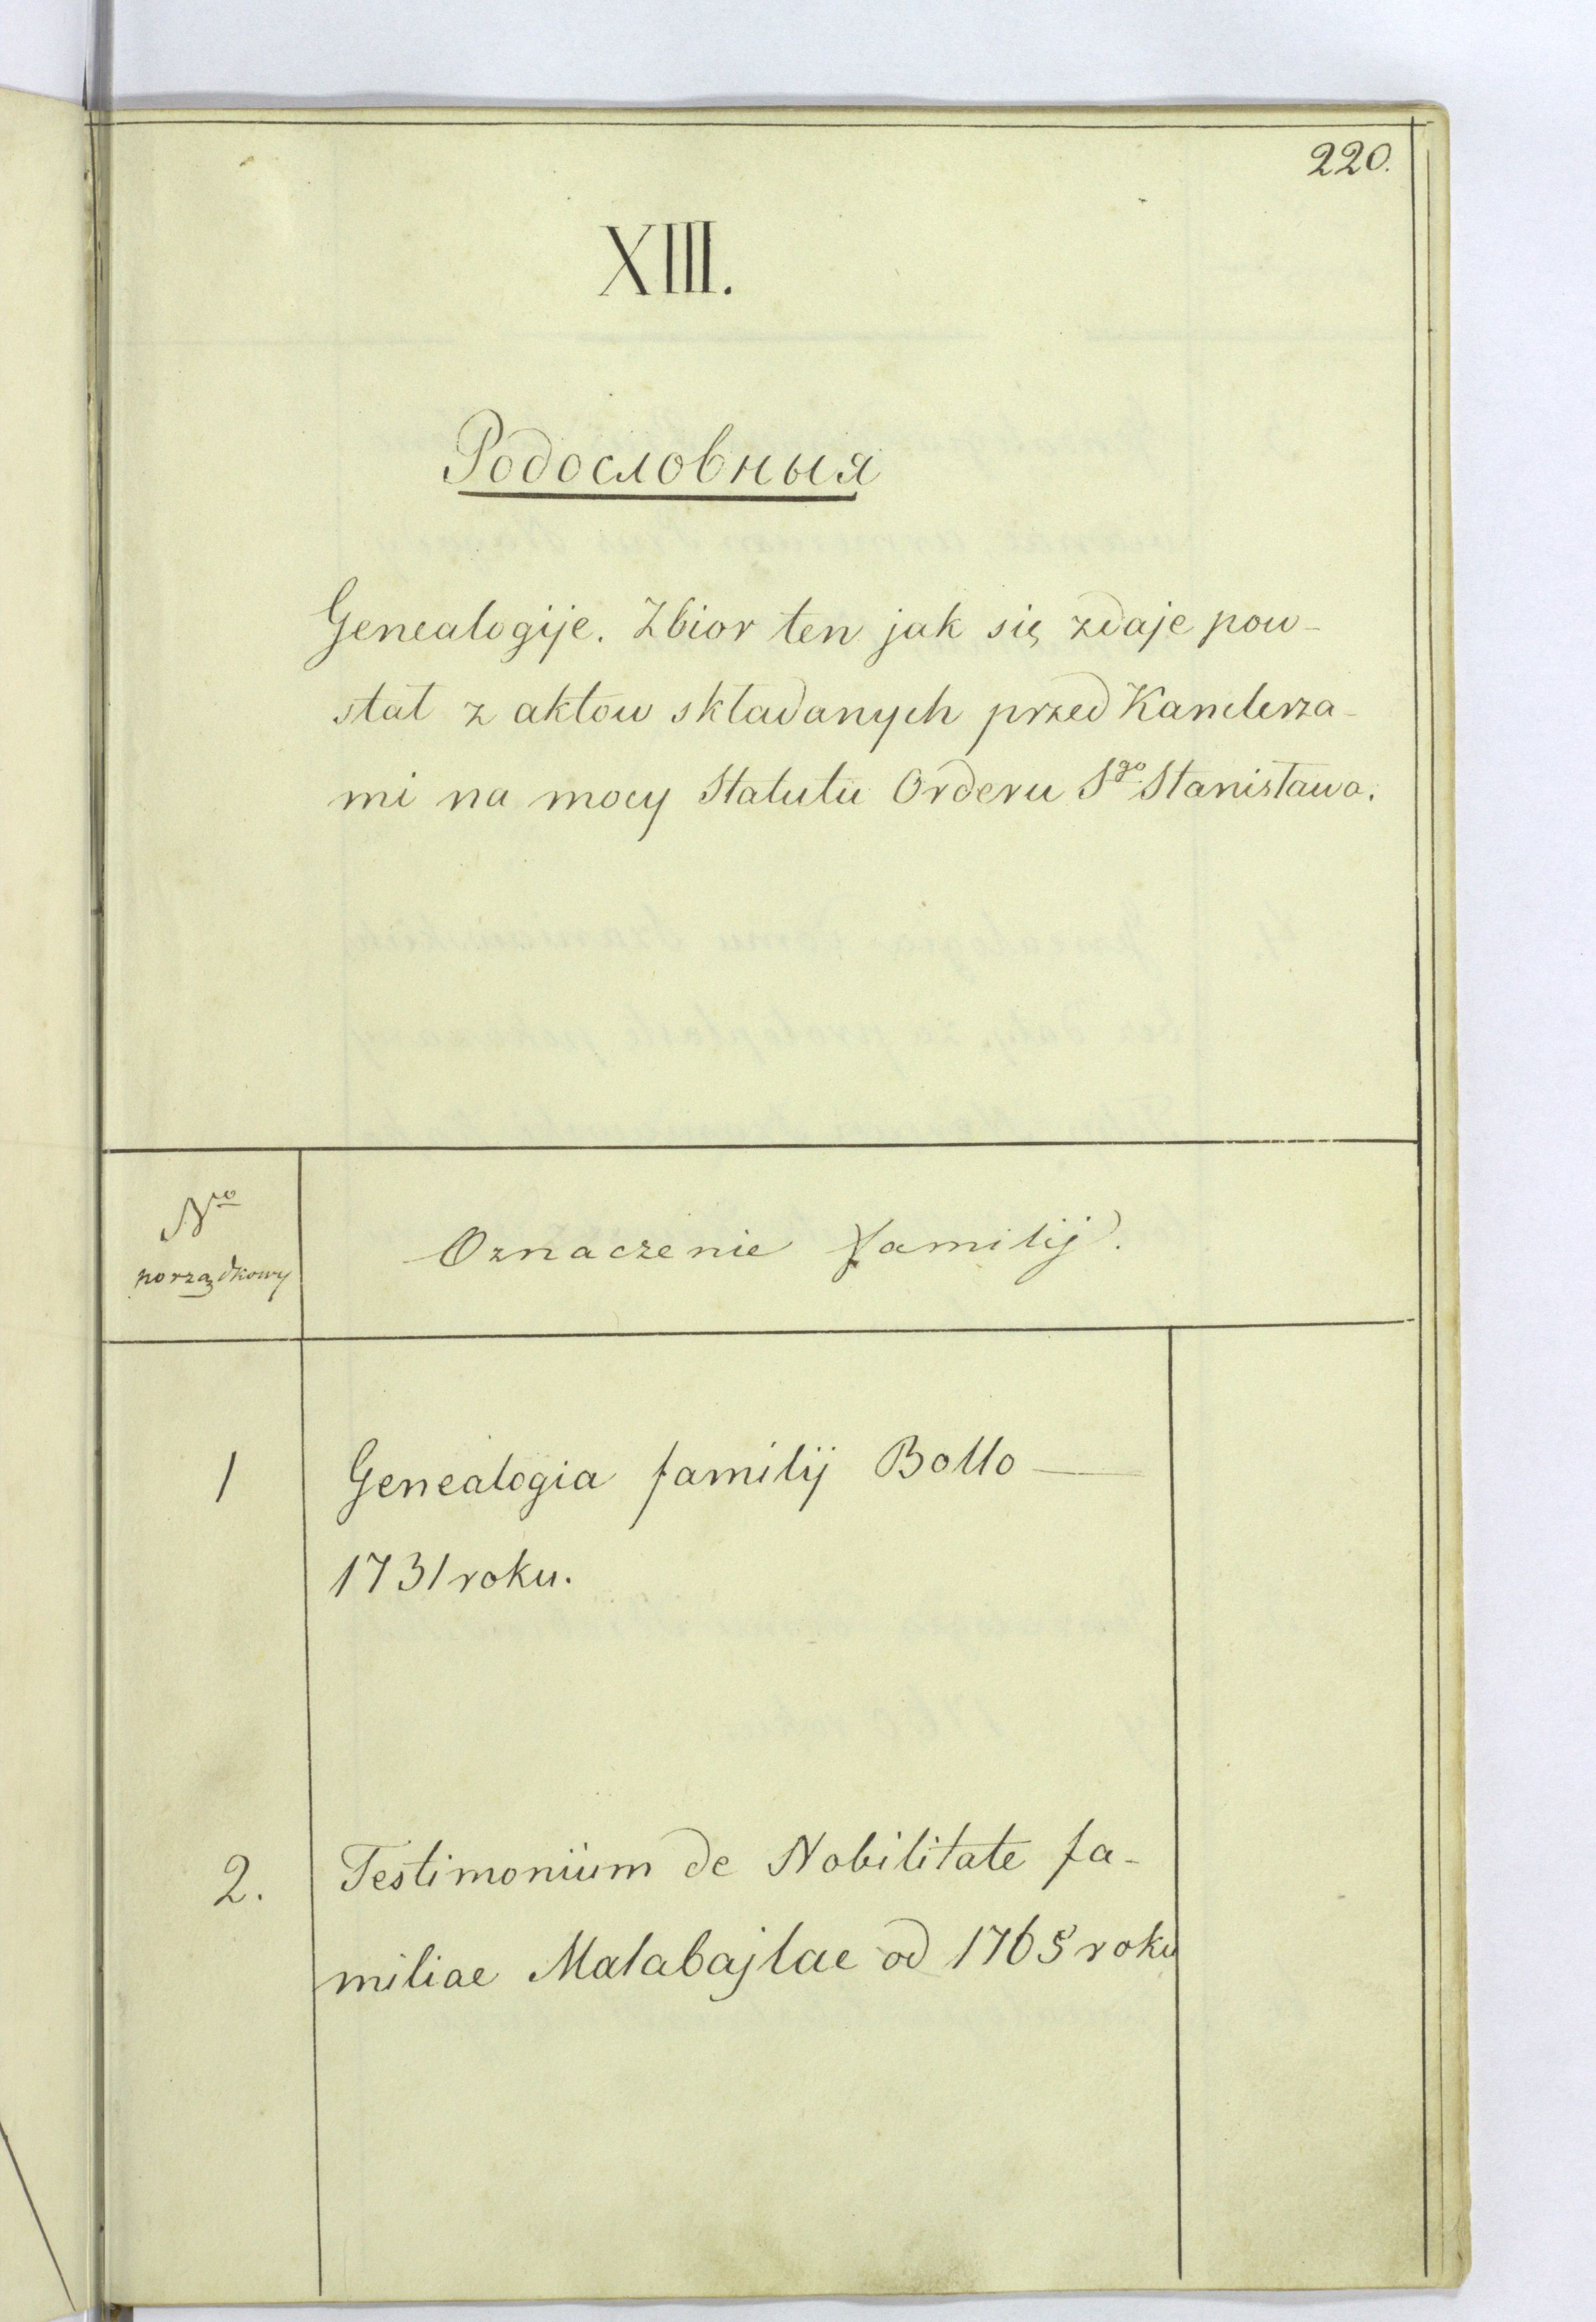 220.
XIII.
Родословныя
Genealogije. Zbior ten jak się zdaje pow-
stał z aktow składanych przed Kanclerza-
mi na mocy Statutu Orderu Sgo Stanisława.
No porządkowy
Oznaczenie familij.
1
Genealogia familij Bollo —
1731 roku.
2.
Testimonium de Nobilitate fa-
miliae Malabajlae od 1765 roku